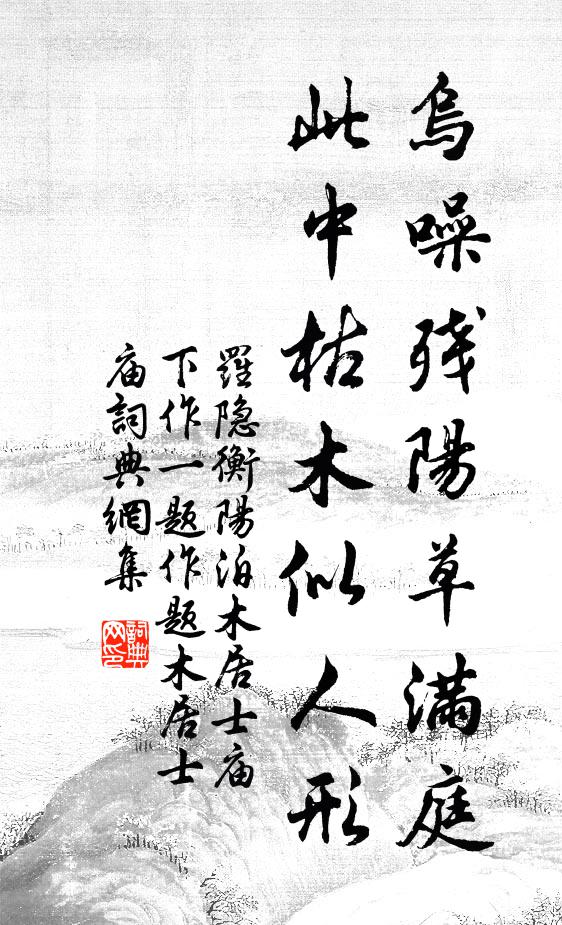 烏噪残陽草满庭
此中枯木似人形
羅隐衡陽泊木居士庙
下作一题作题木居士
庙詞典網集
詞典
网印